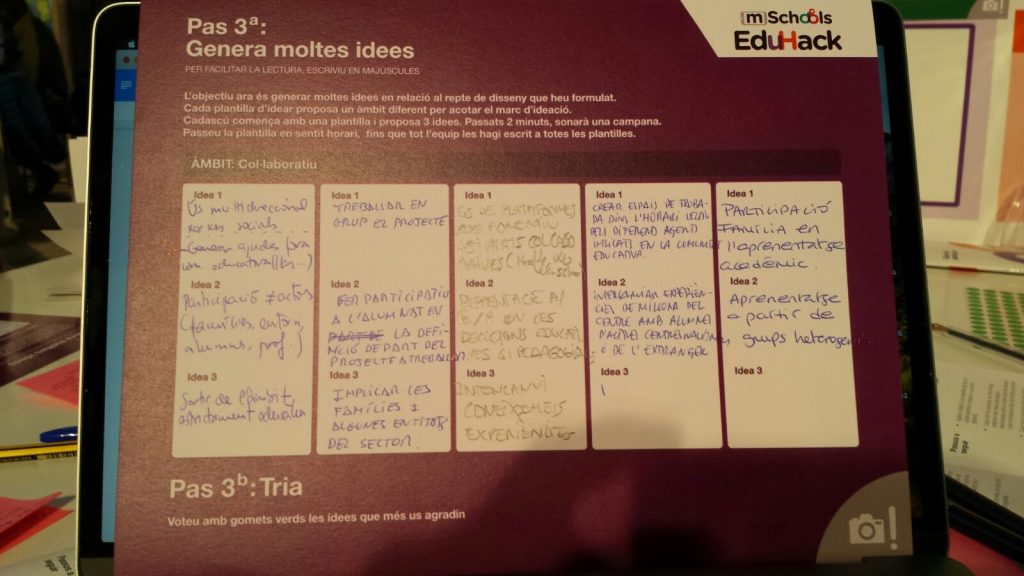 Pas 3ª:
Genera moltes idees
PER FACILITAR LA LECTURA, ESCRIVIU EN MAJUSCULES
[m]Schools
EduHack
L'objectiu ara és generar moltes idees en relació al repte de disseny que heu formulat.
Cada plantilla d'idear proposa un àmbit diferent per acotar el marc d'ideació.
Cadascú comença amb una plantilla i proposa 3 idees. Passats 2 minuts, sonarà una campana.
Passeu la plantilla en sentit horari, fins que tot l'equip les hagi escrit a totes les plantilles.
ÀMBIT: Col·laboratiu
Idea 1
Ús multidireccional
xarxes socials
Idea 2
Participació
(famílies, entorn,
alumnes, prof.)
Idea 3
Sortir de l'àmbit
estrictament
Idea 1
TREBALLAR EN
GRUP EL PROJECTE
Idea 2
FER PARTICIPATIU
A L'ALUMNAT EN
LA DEFI-
NICIÓ DE PART DEL
PROJECTE A TREBALLAR
Idea 3
IMPLICAR LES
FAMÍLIES I
ALGUNES ENTITATS
DEL SECTOR.
Idea 1
ÚS DE PLATAFORMES
QUE FOMENTIN
ACTIVITATS
Idea 2
EN LES
DECISIONS
Idea 3
INTERCANVI
CONEIXEMENTS
EXPERIÈNCIES
Idea 1
CREAR ESPAIS DE TROBA-
DA DINS L'HORARI
DELS DIFERENTS AGENTS
IMPLICATS EN LA COMUNITAT
EDUCATIVA.
Idea 2
INTERCANVIAR EXPERIÈN-
CIES DE MILLORA DEL
CENTRE AMB ALUMNES
D'ALTRES CENTRES NACIONALS
O DE L'EXTRANGER
Idea 3
Idea 1
PARTICIPACIÓ
FAMÍLIA EN
l'aprenentatge
acadèmic.
Idea 2
Aprenentatge
a partir de
grups heterogenis
Idea 3
Pas 3ᵇ: Tria
Voteu amb gomets verds les idees que més us agradin